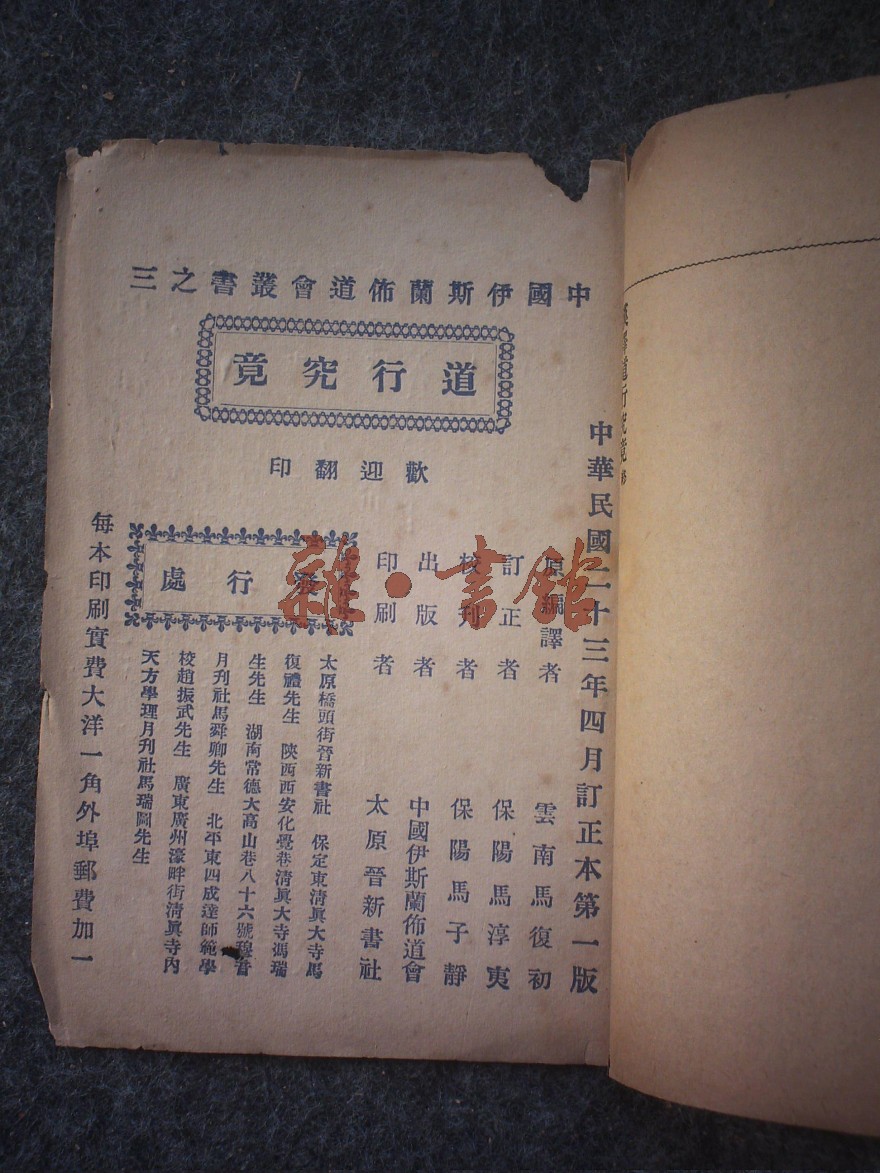 中國伊斯蘭佈道會叢書之三
道行究竟
歡迎翻印
中華民國二十三年四月訂正本第一版
原編譯者 雲南馬復初
訂正者 保陽馬淳夷
校刊者 保陽馬子靜
出版者 中國伊斯蘭佈道會
印刷者 太原晉新書社
發行處
太原橋頭街晉新書社 保定東清眞大寺馬
復禮先生 陝西西安化覺巷清眞大寺馮瑞
生先生 湖南常德大高山巷八十六號穆音
月刊社馬舜卿先生 北平東四成達師範學
校趙振武先生 廣東廣州濠畔街清眞寺內
天方學理月刊社馬瑞圖先生
每本印刷實費大洋一角外埠郵費加一
道行究竟
雜·書館